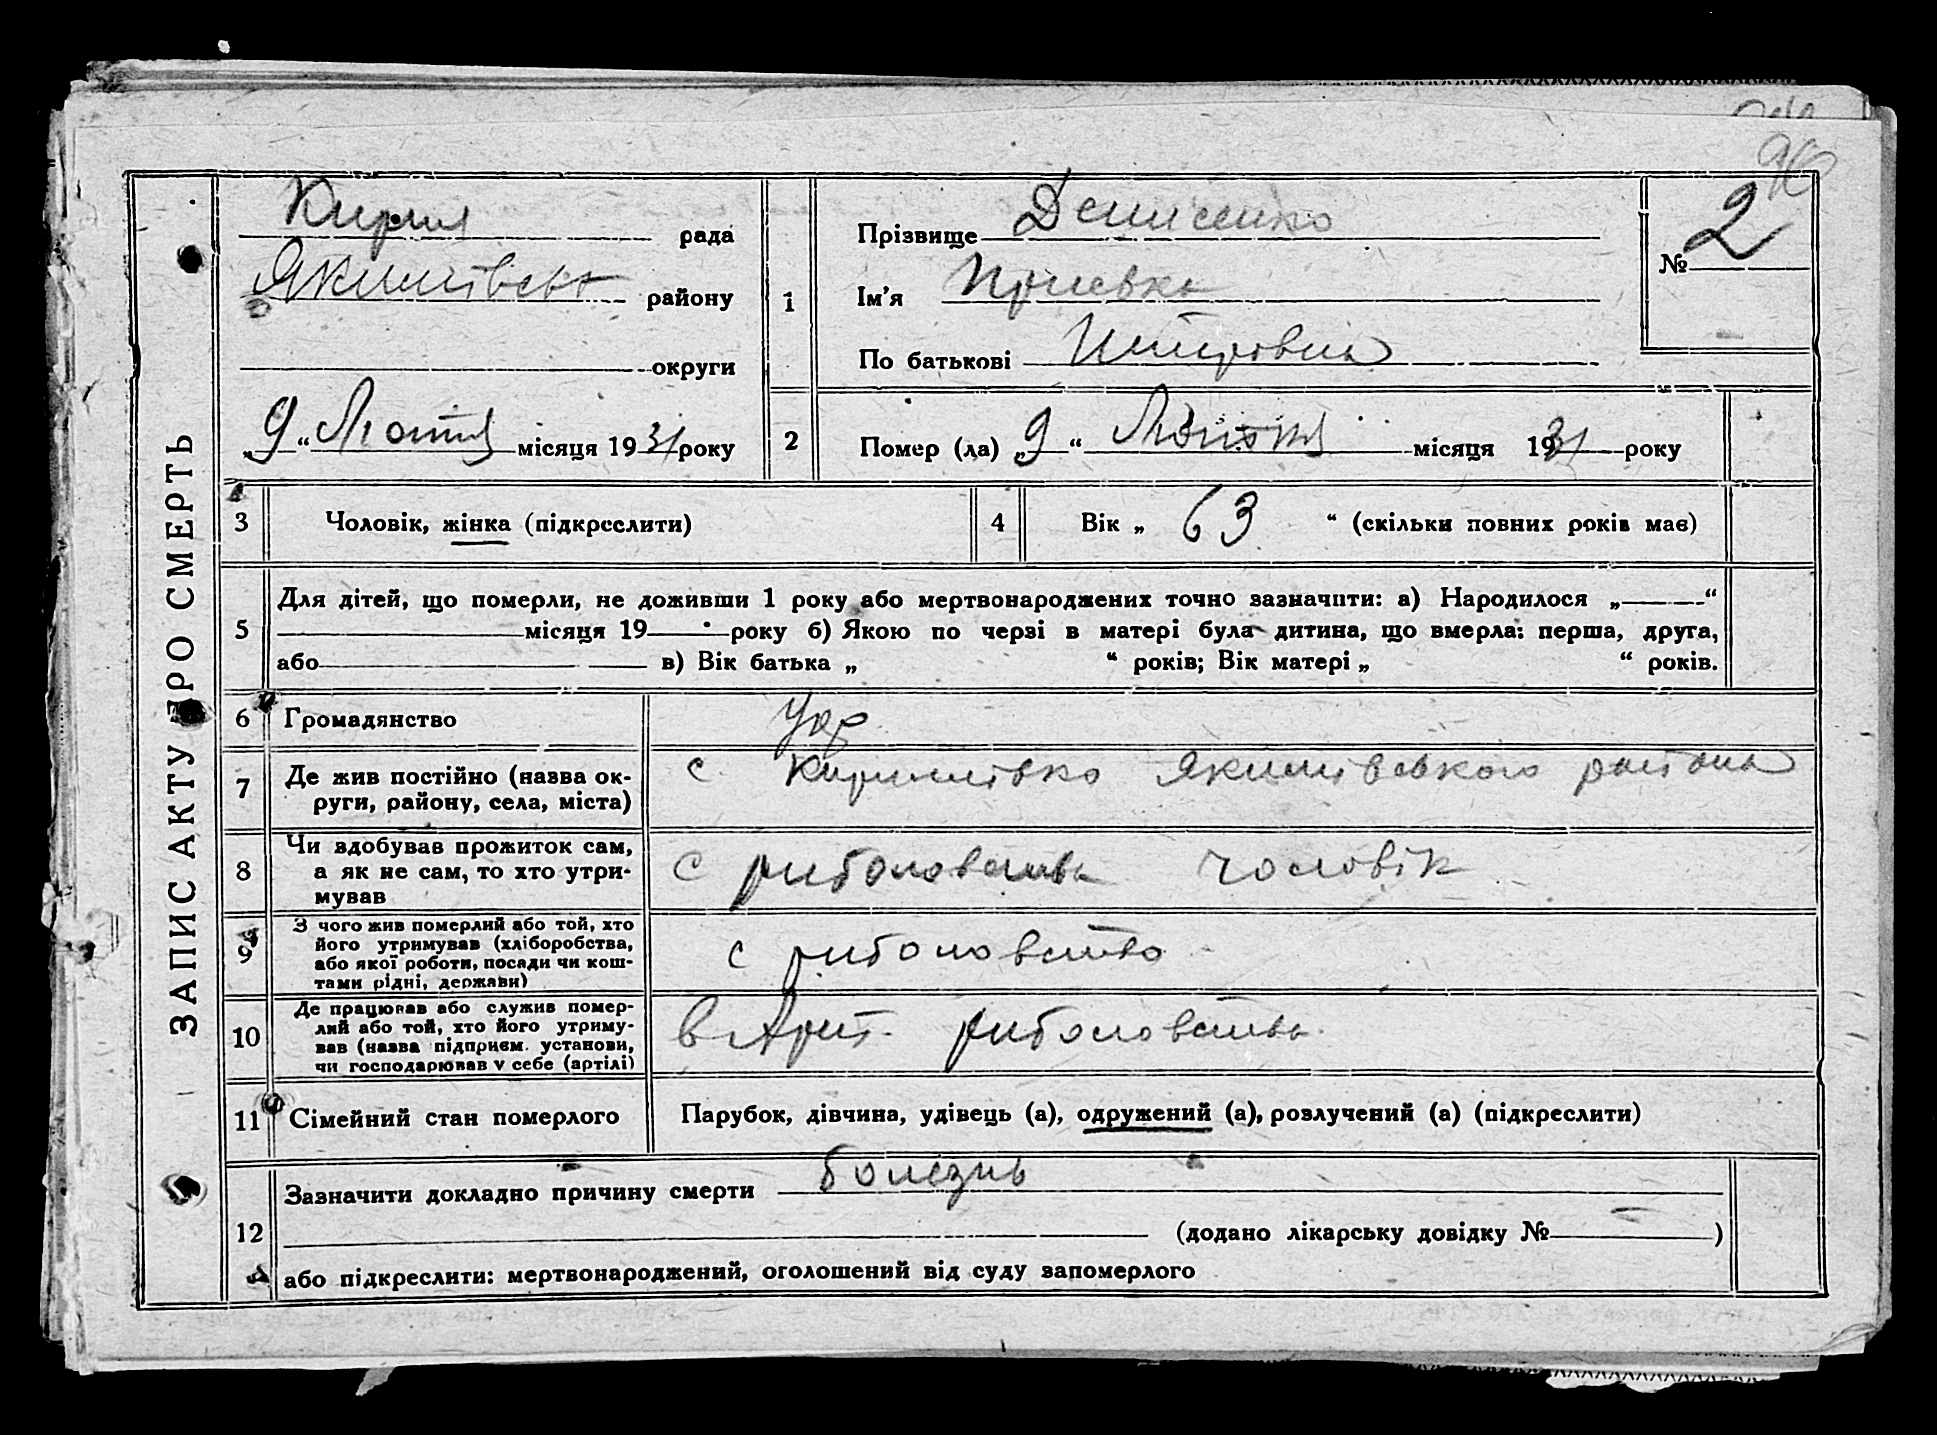 ЗАПИС АКТУ ПРО СМЕРТЬ
96
Кирил рада
Якимівсько району
округи
„9“ Лютия місяця 1931 року
1
Прізвище Денисенко
Ім'я
По батькові Петровна
№ 2
2 Помер (ла) „9“ Лютия місяця 1931 року
3 Чоловік, жінка (підкреслити)
4 Вік „ 63 “ (скільки повних років має)
5 Для дітей, що померли, не доживши 1 року або мертвонароджених точно зазначити: а) Народилося „ “
місяця 19 року б) Якою по черзі в матері була дитина, що вмерла: перша, друга,
або в) Вік батька „ “ років; Вік матері „ “ років.
6 Громадянство Укр
7 Де жив постійно (назва ок-
руги, району, села, міста)
с. Кирилівка Якимівського района
8 Чи здобував прожиток сам,
а як не сам, то хто утри-
мував
С риболовства чоловік
9 З чого жив померлий або той, хто
його утримував (хліборобства,
або якої роботи, посади чи кош-
тами рідні, держави)
с риболовство
10 Де працював або служив помер-
лий або той, хто його утриму-
вав (назва підприєм. установи,
чи господарював у себе (артілі)
в Арт. риболовства.
11 Сімейний стан померлого Парубок, дівчина, удівець (а), одружений (а), розлучений (а) (підкреслити)
12 Зазначити докладно причину смерти болезнь
(додано лікарську довідку № )
або підкреслити: мертвонароджений, оголошений від суду запомерлого